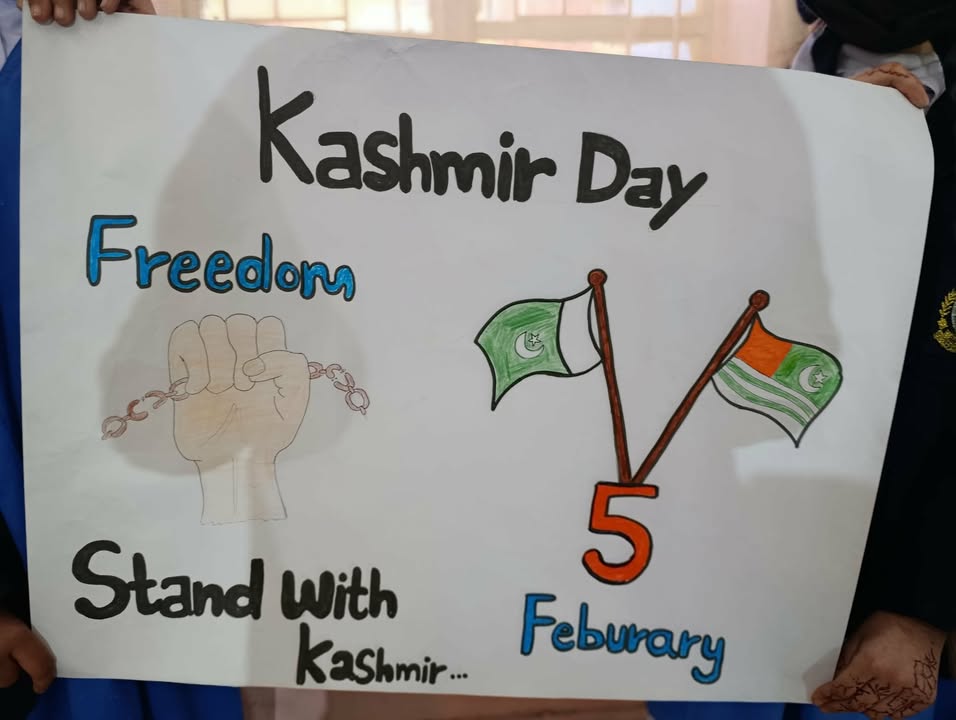 Kashmir Day
Freedom
5
Feburary
Stand With
Kashmir...